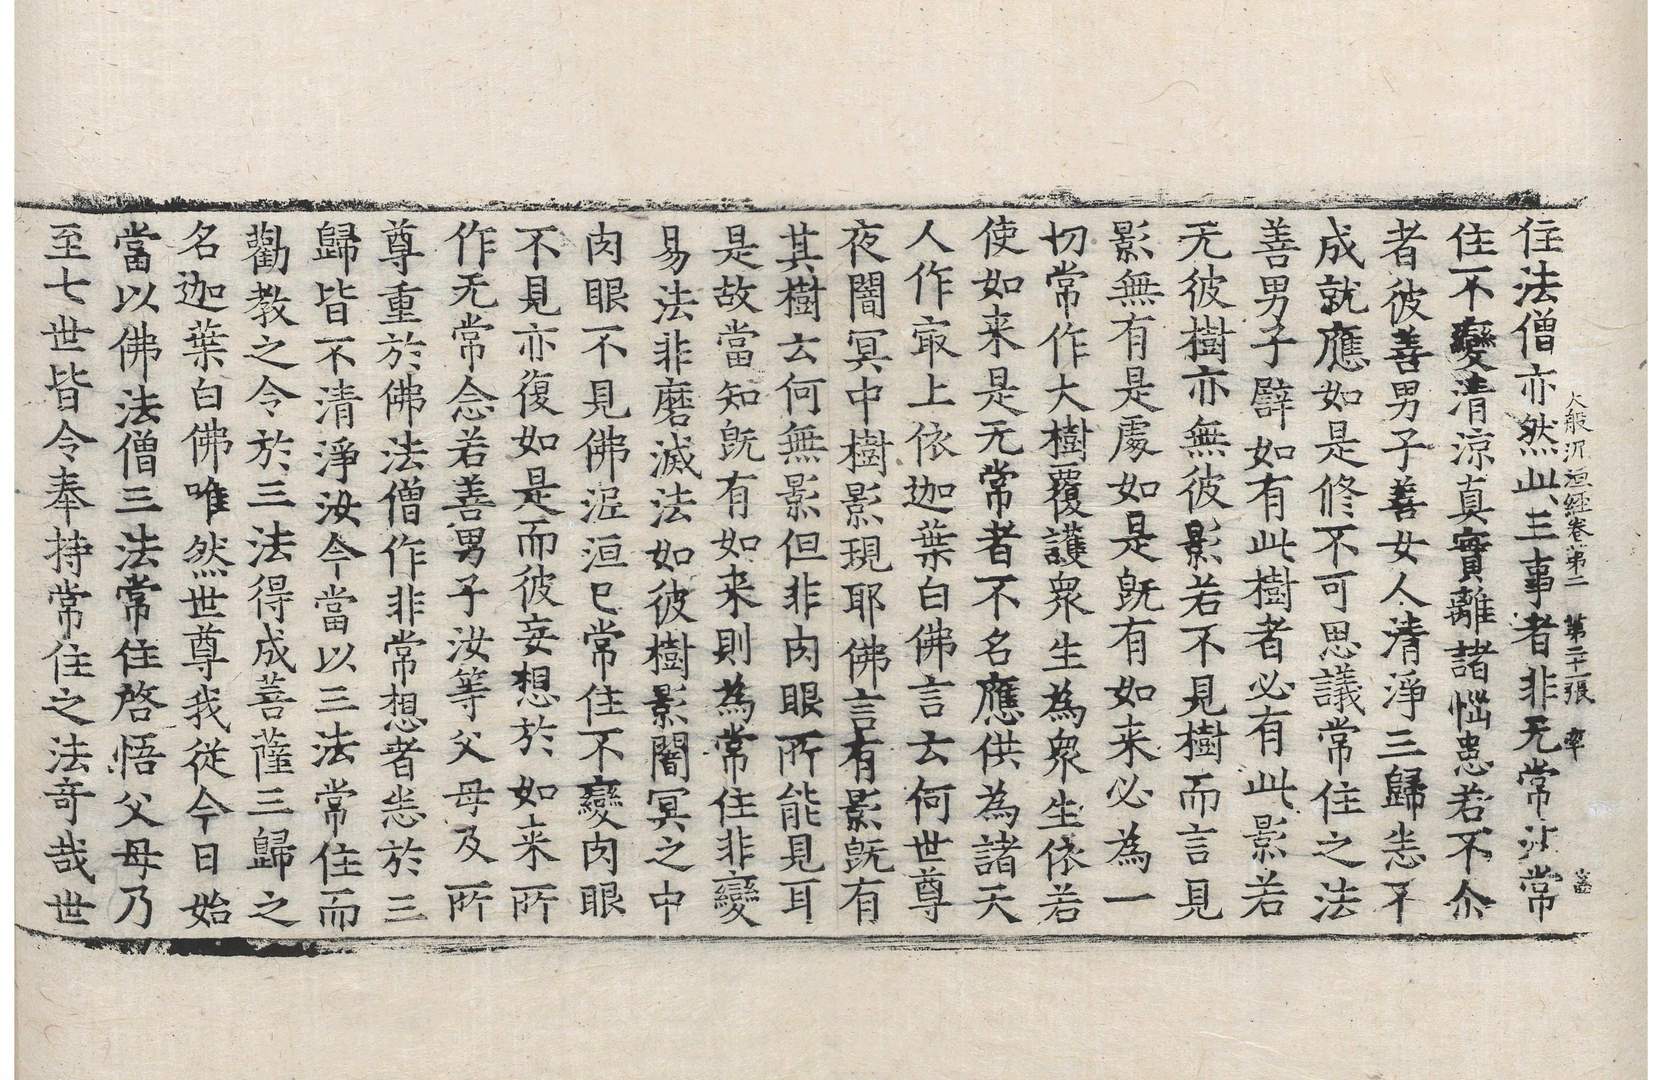 大般泥洹經卷第二　第二十一張　率
住法僧亦然此三事者非无常法常
住不變清涼真實離諸惱患若不尒
者彼善男子善女人清淨三歸悉不
成就應如是修不可思議常住之法
善男子譬如有此樹者必有此影若
无彼樹亦無彼影若不見樹而言見
影無有是處如是旣有如来必為一
切常作大樹覆護衆生為衆生依若
使如来是无常者不名應供為諸天
人作㝡上依迦葉白佛言云何世尊
夜闇冥中樹影現耶佛言有影旣有
其樹云何無影但非肉眼所能見耳
是故當知旣有如来則為常住非變
易法非磨滅法如彼樹影闇冥之中
肉眼不見佛泥洹已常住不變肉眼
不見亦復如是而彼妄想於如来所
作无常念若善男子汝等父母及所
尊重於佛法僧作非常想者悉於三
歸皆不清淨汝今當以三法常住而
勸教之令於三法得成菩薩三歸之
名迦葉白佛唯然世尊我從今日始
當以佛法僧三法常住啓悟父母乃
至七世皆令奉持常住之法奇哉世